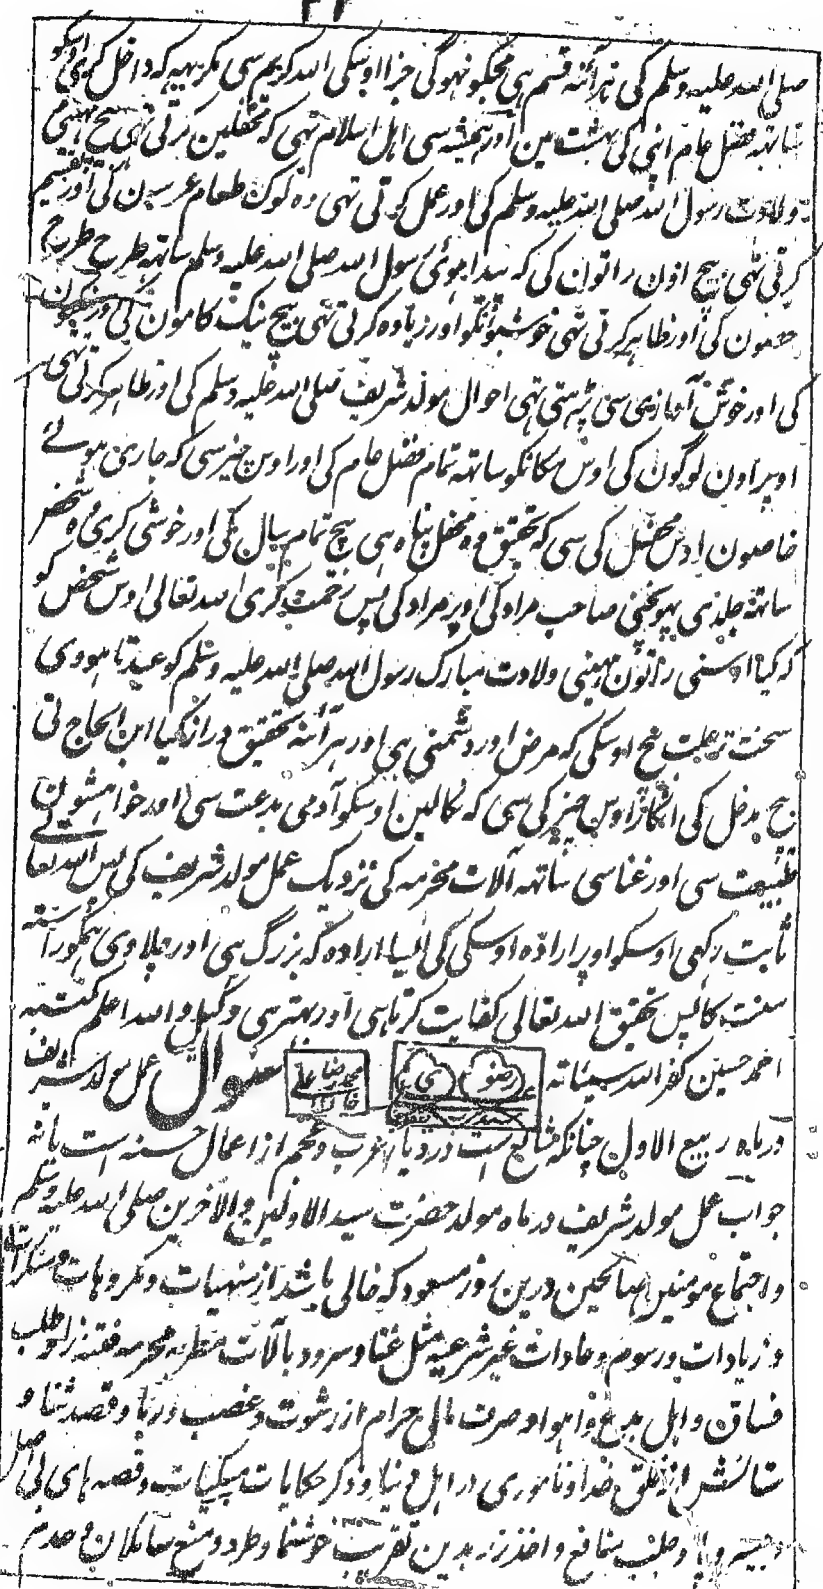 صلی اللہ علیہ وسلم کی ہر آئنہ قسم ہی مجکو نہوگی جزا اوسکی اللہ کریم سی مگر یہہ کہ داخل کری اوسکو
ساتھہ فضل عام اپنی کی بہشت مین اور ہمیشہ سی اہل اسلام تہی کہ محفلین کرتی تہی بیچ مہینی
ولادت رسول اللہ صلی اللہ علیہ وسلم کی اور عمل کرتی تہی وہ لوگ طعام عرسون کی اور تقسیم
کرتی تہی بیچ اون راتون کی کہ پیدا ہوئی رسول اللہ صلی اللہ علیہ وسلم ساتھہ طرح طرح
کی اور ظاہر کرتی تہی خوشیونکو اور زیادہ کرتی تہی بیچ نیک کامون کی
کی اور خوش آوازی سی پڑہتی تہی احوال مولد شریف صلی اللہ علیہ وسلم کی اور ظاہر کرتی تہی
اوپر اون لوگون کی اوس مکانکو ساتھہ تمام فضل عام کی اور اوس چیز سی کہ جاری ہوئے
خاصون اوس محفل کی سی کہ تحقیق وہ محفل پناہ ہی بیچ تمام سال کی اور خوشی کری وہ شخص
ساتھہ جلدی پہونچنی صاحب مراد کی اوپر مراد کی پس رحمت کری اللہ تعالی اوس شخص کو
کہ کیا اوسنی راتون مہینی ولادت مبارک رسول اللہ صلی اللہ علیہ وسلم کو عید تا ہووی
سخت تر علت بیچ اوسکی کہ مرض اور دشمنی ہی اور ہر آئنہ تحقیق دراز کیا ابن الحاج نی
بیچ مدخل کی انکار اوس چیز کی سی کہ نکالین اوسکو آدمی بدعت سی اور خواہشون
طبیعت سی اور غنا سی ساتھہ آلات محرمہ کی نزدیک عمل مولد شریف کی پس اللہ تعالی
ثابت رکھی اوسکو اوپر ارادہ اوسکی کی ایسا ارادہ کہ بزرگ ہی اور چلاوی ہمکو راستہ
سنت کا پس تحقیق اللہ تعالی کفایت کرتا ہی اور بہتر ہی وکیل واللہ اعلم کتبہ
احمد حسین کفر اللہ سیئاتہ محمد رضا علی سوال عمل مولد شریف
درماہ ربیع الاول چنانکہ شائع است در دیار عرب وعجم از اعمال حسنہ است یا نہ
جواب عمل مولد شریف درماہ مولد حضرت سید الاولین والآخرین صلی اللہ علیہ وسلم
واجتماع مومنین صالحین درین روز مسعود کہ خالی باشد از منہیات ومکروہات ومنکرات
وزیادات ورسوم وعادات غیر شرعیہ مثل غنا وسرود بآلات مطربہ محرمہ فتنہ زا وطلب
فساق واہل بدع واہوا وصرف مال حرام از رشوت وغصب وزنا وقصد ثنا و
ستایش از خلق خدا وناموری در اہل دنیا وذکر حکایات وقصہ ہای بی اصل
وطلب منافع واخذ زر بدین تقریب خوشنما وطرد ومنع سائلان وعدم